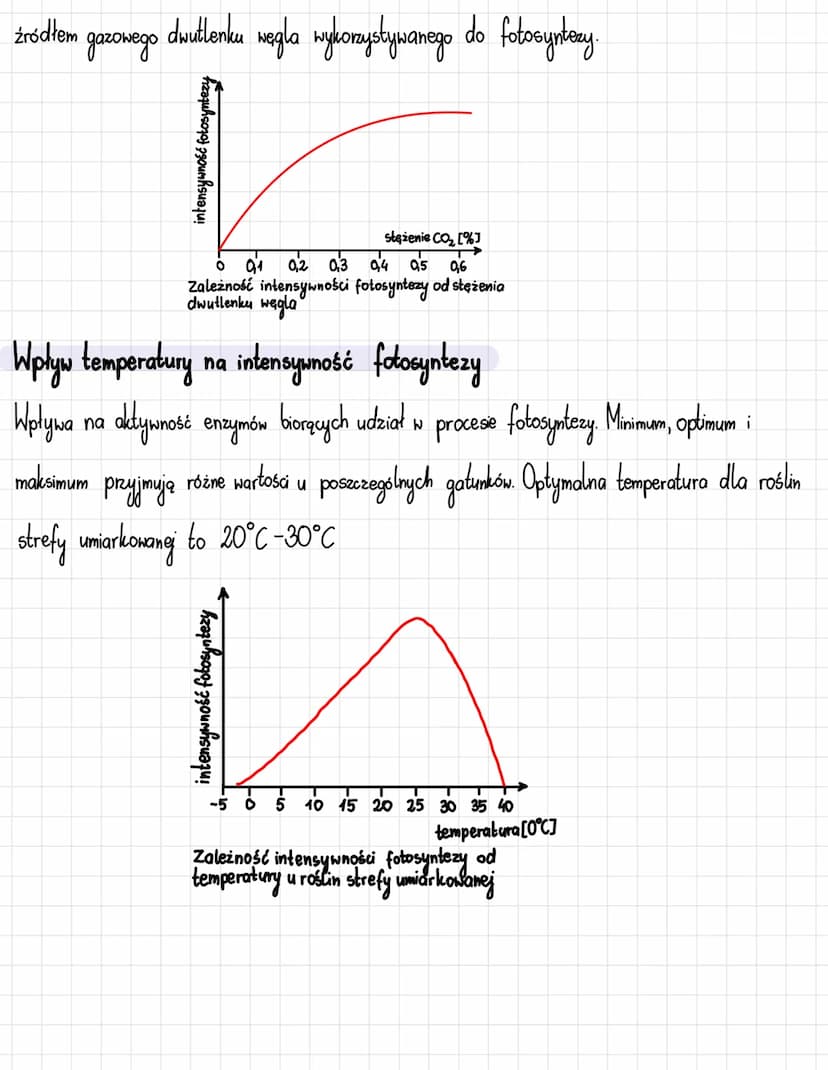 źródłem gazowego dwutlenku węgla wykorzystywanego do fotosyntezy.
intensywność fotosyntezy
stężenie CO₂ [%]
0 0,1 0,2 0,3 0,4 0,5 0,6
Zależność intensywności fotosyntezy od stężenia
dwutlenku węgla
Wpływ temperatury na intensywność fotosyntezy
Wpływa na aktywność enzymów biorących udział w procesie fotosyntezy. Minimum, optimum i
maksimum przyjmują różne wartości u poszczególnych gatunków. Optymalna temperatura dla roślin
strefy umiarkowanej to 20°C-30°C
intensywność fotosyntezy
-5 0 5 10 15 20 25 30 35 40
temperatura [0°C]
Zależność intensywności fotosyntezy od
temperatury u roślin strefy umiarkowanej